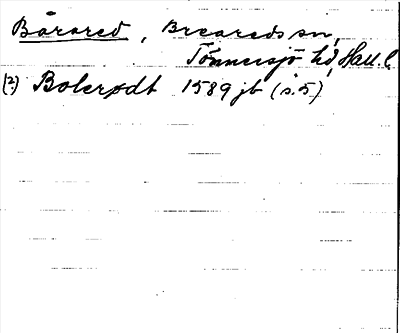 Bårared, Breareds sn,
Tönnersjö hd, Hall. l.
(?) Bolerødt 1589 jb (s. 5)